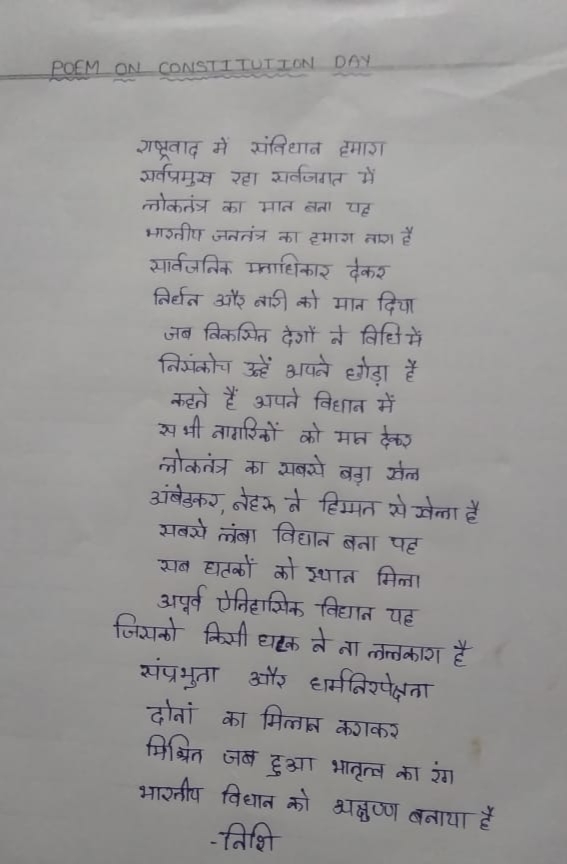 POEM ON CONSTITUTION DAY
राष्ट्रवाद में संविधान हमारा
सर्वप्रमुख रहा सर्वजगत में
लोकतंत्र का मान बना यह
भारतीय जनतंत्र का हमारा नारा है
सार्वजनिक मताधिकार देकर
निर्धन और नारी को मान दिया
जब विकसित देशों ने विधि में
निसंकोच उन्हें अपने छोड़ा है
कहते हैं अपने विधान में
सभी नागरिकों को मत देकर
लोकतंत्र का सबसे बड़ा खेल
अंबेडकर, नेहरू ने हिम्मत से खेला है
सबसे लंबा विधान बना यह
सब घटकों को स्थान मिला
अपूर्व ऐतिहासिक विधान यह
जिसको किसी घटक ने ना ललकारा है
संप्रभुता और धर्मनिरपेक्षता
दोनों का मिलान कराकर
मिश्रित जब हुआ भातृत्व का रंग
भारतीय विधान को अक्षुण्ण बनाया है
-निशि